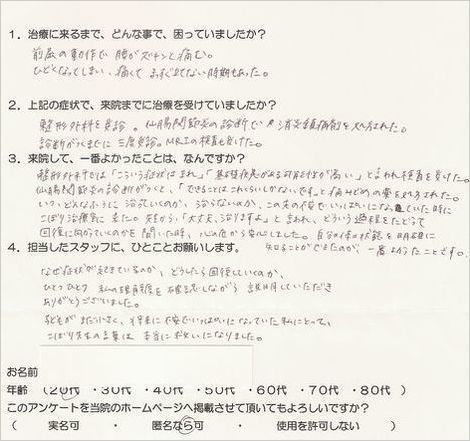 1. 治療に来るまで、どんな事で、困っていましたか?
前屈の動作で 腰がズキンと痛む。
ひどくなってしまい、痛くて まっすぐ立てない時期もあった。
2. 上記の症状で、来院までに治療を受けていましたか?
整形外科を受診。仙腸関節炎の診断で 消炎鎮痛剤を処方された。
診断がつくまでに 三度受診。MRIの検査も受けた。
3. 来院して、一番よかったことは、なんですか?
整形外科では「こういう症状はまれ」「基礎疾患がある可能性が高い」と言われ検査を受けた。
仙腸関節炎の診断がつくと、「できることはこれくらいしかないです」と痛み止めの薬を処方された。
いつ、どんなふうに 治っていくのか、治らないのか、この先の不安でいっぱいになっていた時に
こばり治療室に来て、先生から「大丈夫、治りますよ」と言われ、どういう過程をたどって
回復に向かっていくのかを聞いた時、心の底から安心しました。自分の体の状態を明確に
知ることができたのが、一番よかったことです。
4. 担当したスタッフに、ひとことお願いします。
なぜ症状が起きているのか、どうしたら回復していくのか、
ひとつひとつ 私の理解度を確認しながら 説明していただき
ありがとうございました。
子どもがまだ小さく、将来に不安でいっぱいになっていた私にとって、
こばり先生の言葉は 本当に救いになりました。
お名前
年齢 (20代 ・30代 ・40代 ・50代 ・60代 ・70代 ・80代 )
このアンケートを当院のホームページへ掲載させて頂いてもよろしいですか?
( 実名可 ・ 匿名なら可 ・ 使用を許可しない )